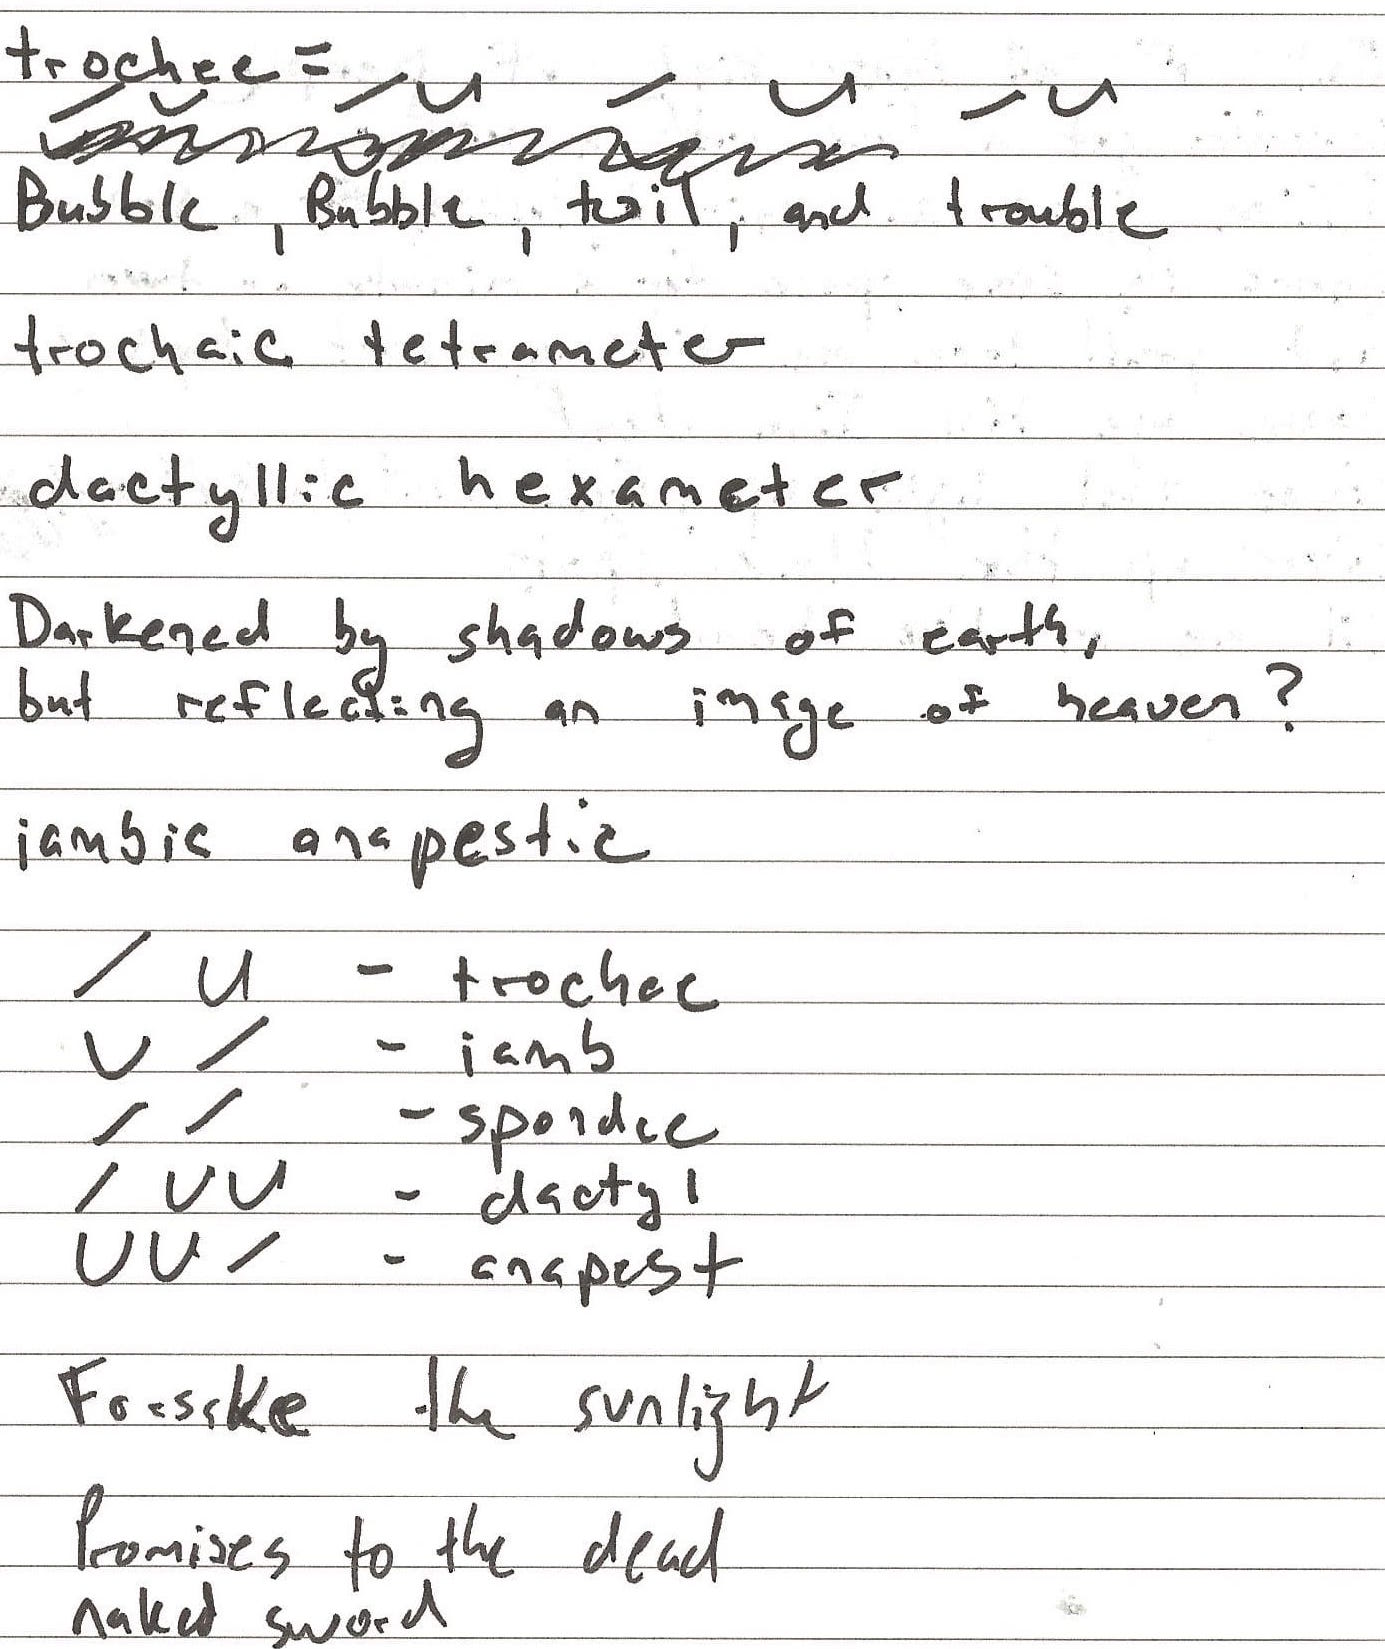 trochee =
/ U / U / U / U
Bubble, Bubble, toil, and trouble
trochaic tetrameter
dactyllic hexameter
Darkened by shadows of earth,
but reflecting an image of heaven?
iambic anapestic
/ U - trochee
U / - iamb
/ / - spondee
/ U U - dactyl
U U / - anapest
Forsake the sunlight
Promises to the dead
naked sword